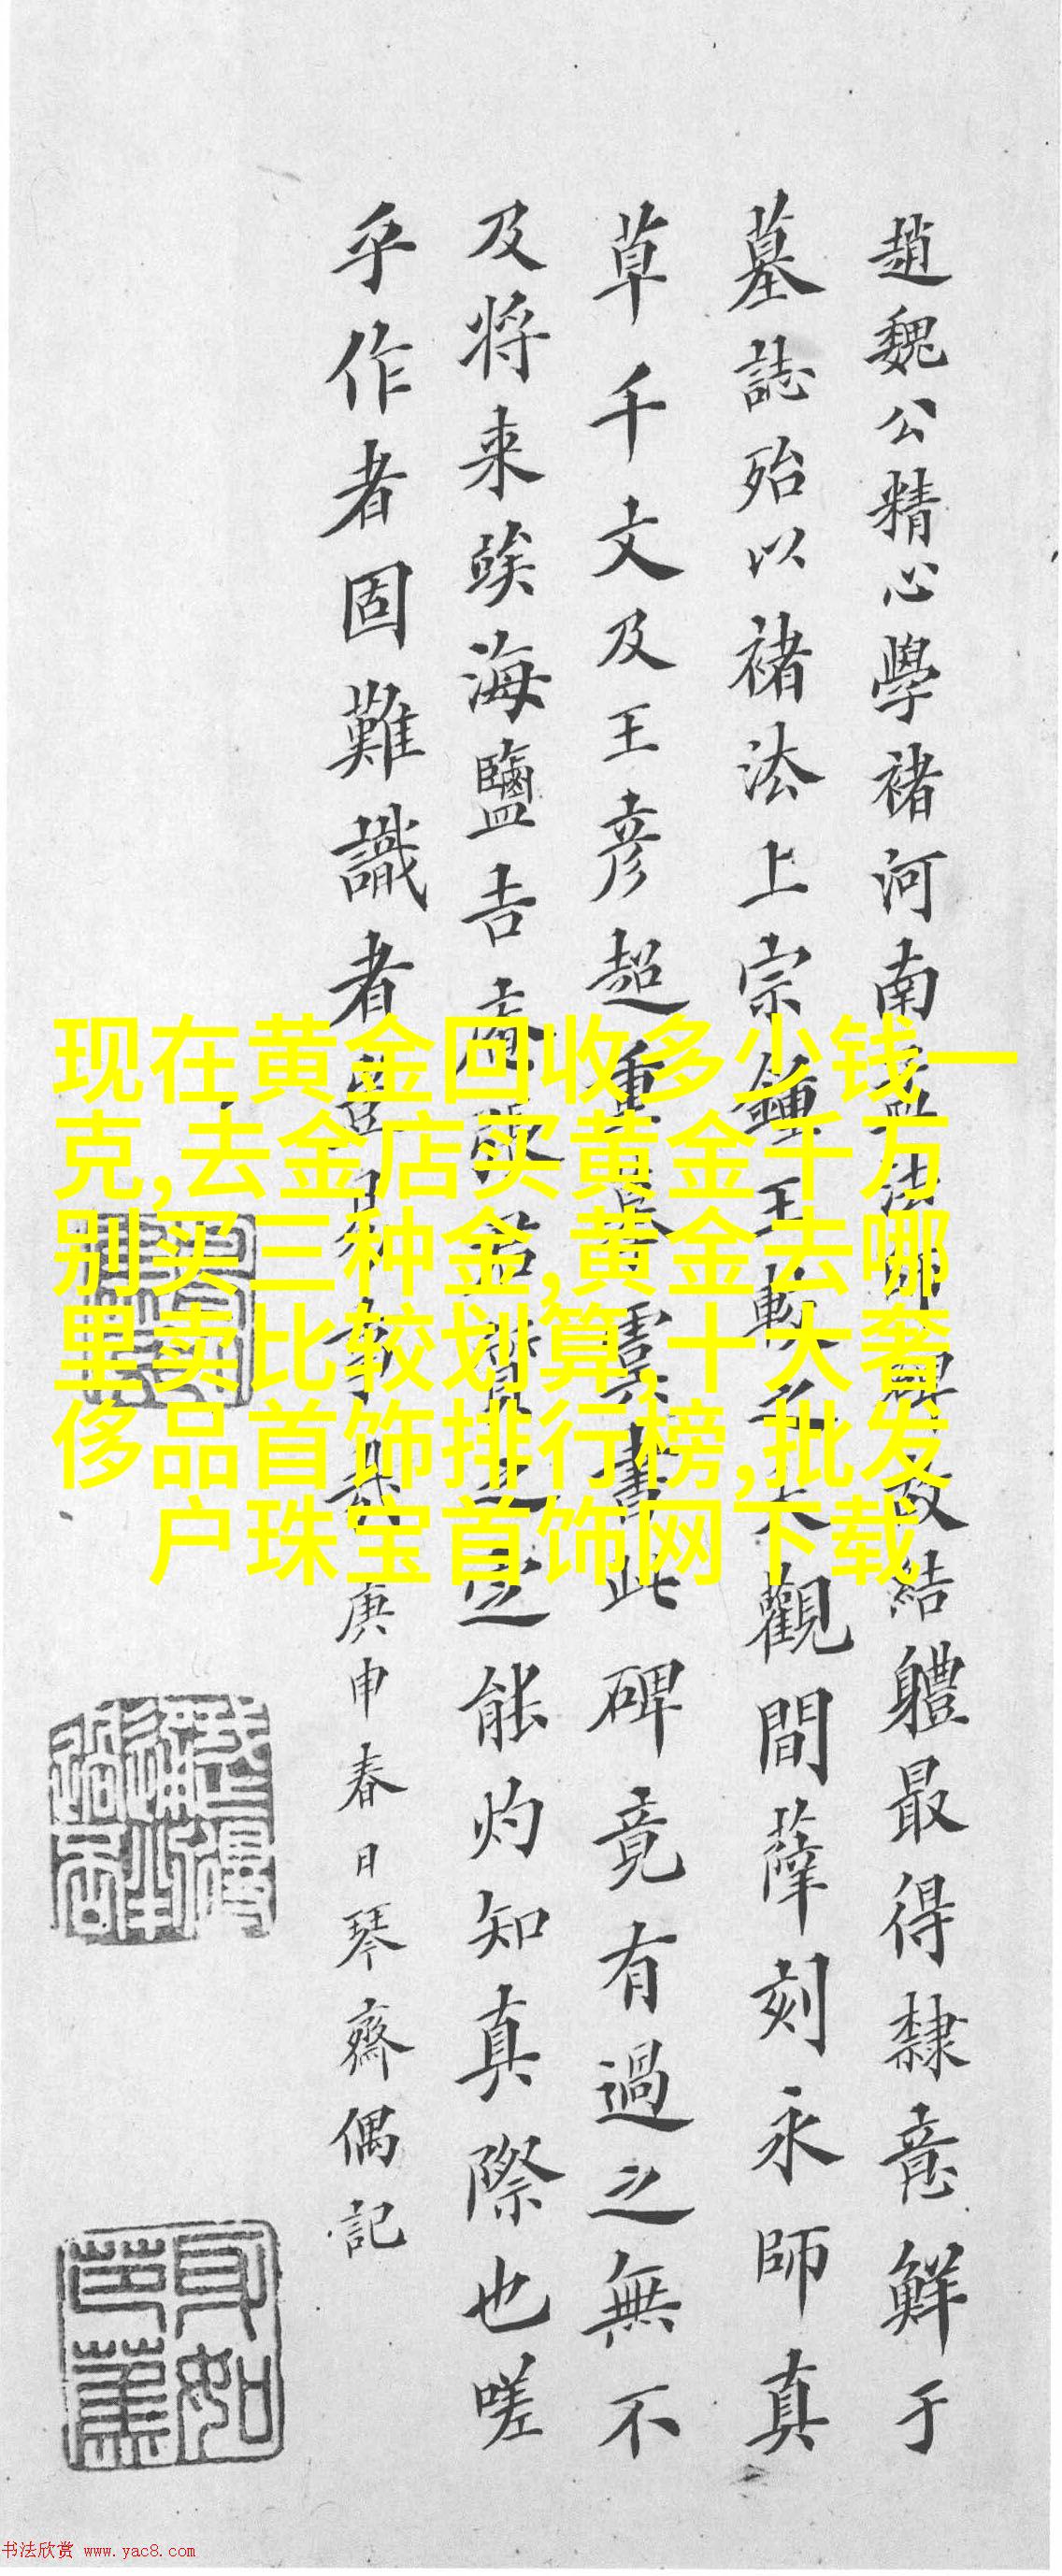 趙魏公精心學褚河南孟法師碑故結體最得隸意鮮于
墓誌殆以褚法上宗鍾王較之大觀間薩刻永師真
草千文及王彦超重
虞書此碑竟有過之無不
及将来俟海鹽吉
之定能灼知真際也嗟
乎作者固難識者
事哉庚申春日琴齋偶記
现在黄金回收多少钱一
克,去金店买黄金千万
别买三种金,黄金去哪
里卖比较划算,十大奢
侈品首饰排行榜,批发
户珠宝首饰网下载
书法欣赏 www.yac8.com